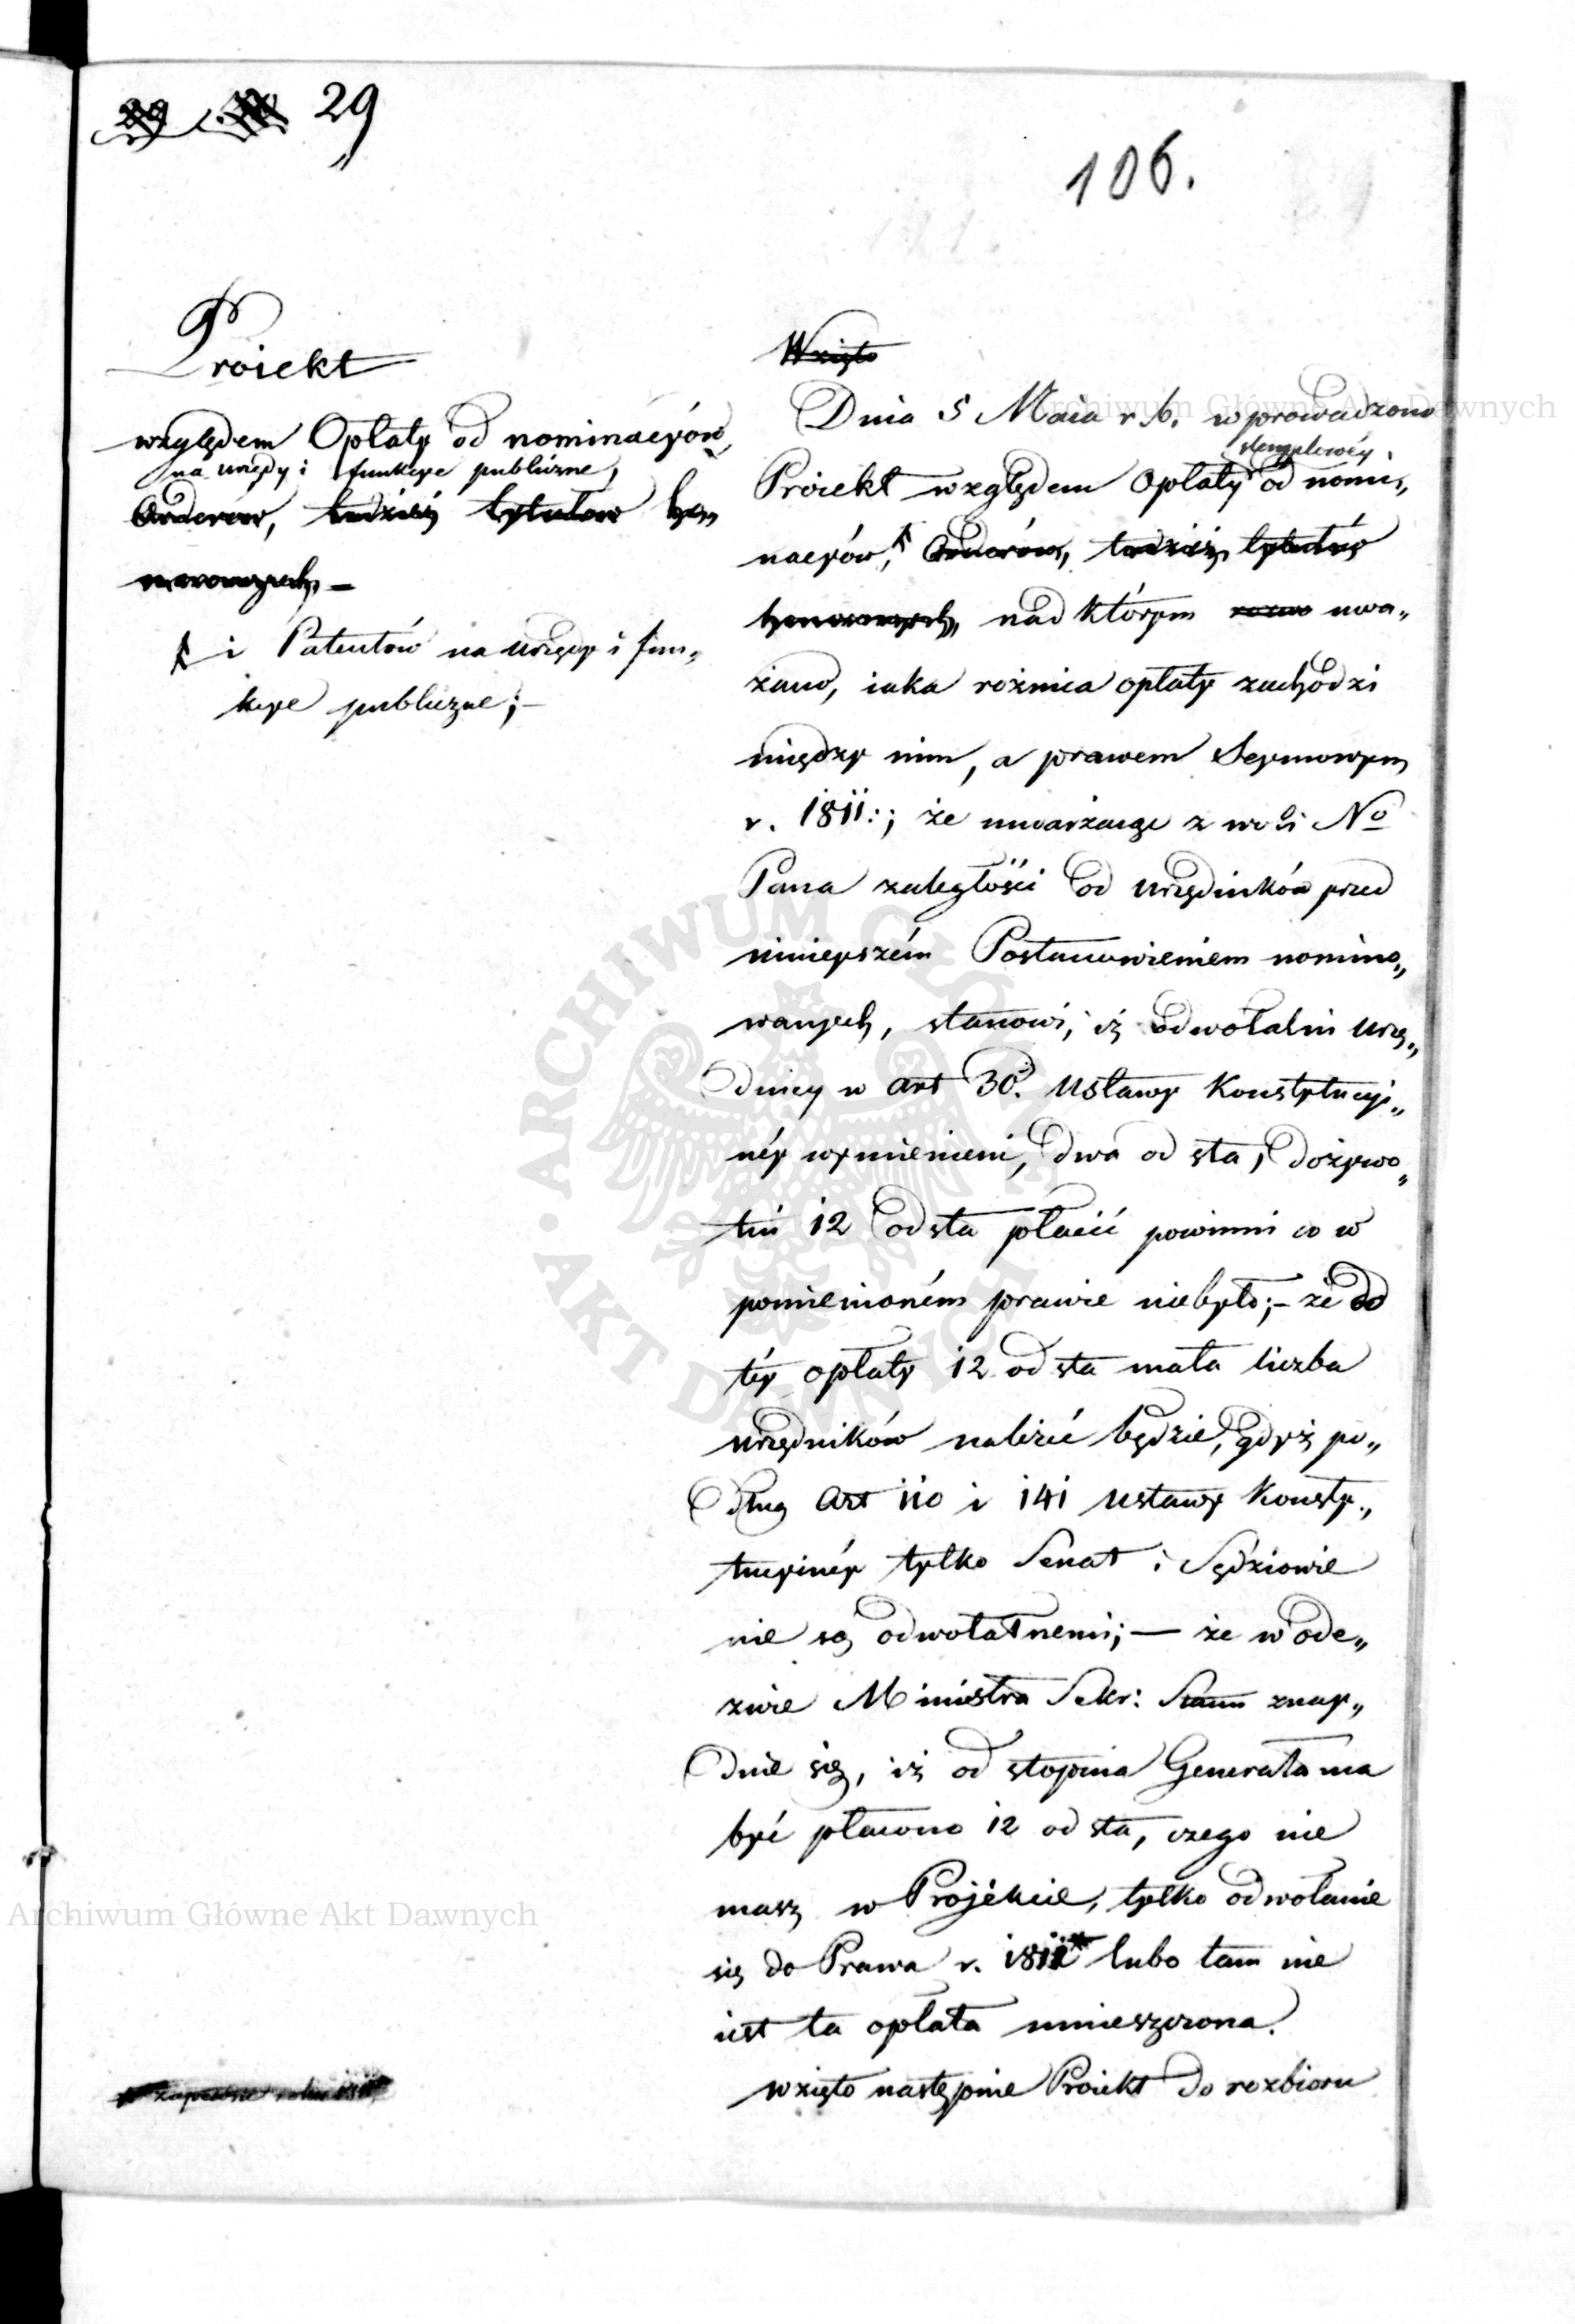 29
106.
Proiekt
względem Opłaty od nominacyów,
na urzędy i funkcye publiczne,
Orderów, tudzież tytułów ho„
norowych. –
i Patentów na urzędy i fun„
kcye publiczne; –
Wzięto
Dnia 5 Maia r. b. wprowadzono
stemplowéy
Proiekt względem Opłaty od nomi„
nacyów, Orderów, tudzież tytułów
honorowych, nad którym uwa„
żano, iaka rożnica opłaty zachodzi
między nim, a prawem Seymowym
r. 1811.; że umarzaiąc z woli No
Pana zaległości od urzędników przed
ninieyszém Postanowieniem nomino„
wanych, stanowi, iż odwołalni urzę„
dnicy w art 30. Ustawy Konstytucyi„
néy wymienieni, dwa od sta, dożywo„
tni 12 od sta płacić powinni co w
pomienioném prawie niebyło; – że do
téy opłaty 12 od sta mała liczba
urzędników należéć będzie, gdyż po„
dług Art 110 i 141 Ustawy Konsty„
tucyinéy tylko Senat i Sędziowie
nie są odwołalnemi; — że w ode„
zwie Ministra Sekr: Stanu znay„
dnie się, iż od stopnia Generała ma
być płacono 12 od sta, czego nie
masz w Projekcie, tylko odwołanie
się do Prawa r. 1811 lubo tam nie
iest ta opłata umieszczona.
Wzięto następnie Proiekt do rozbioru
Archiwum Główne Akt Dawnych
Archiwum Główne Akt Dawnych
ARCHIWUM GŁÓWNE AKT DAWNYCH